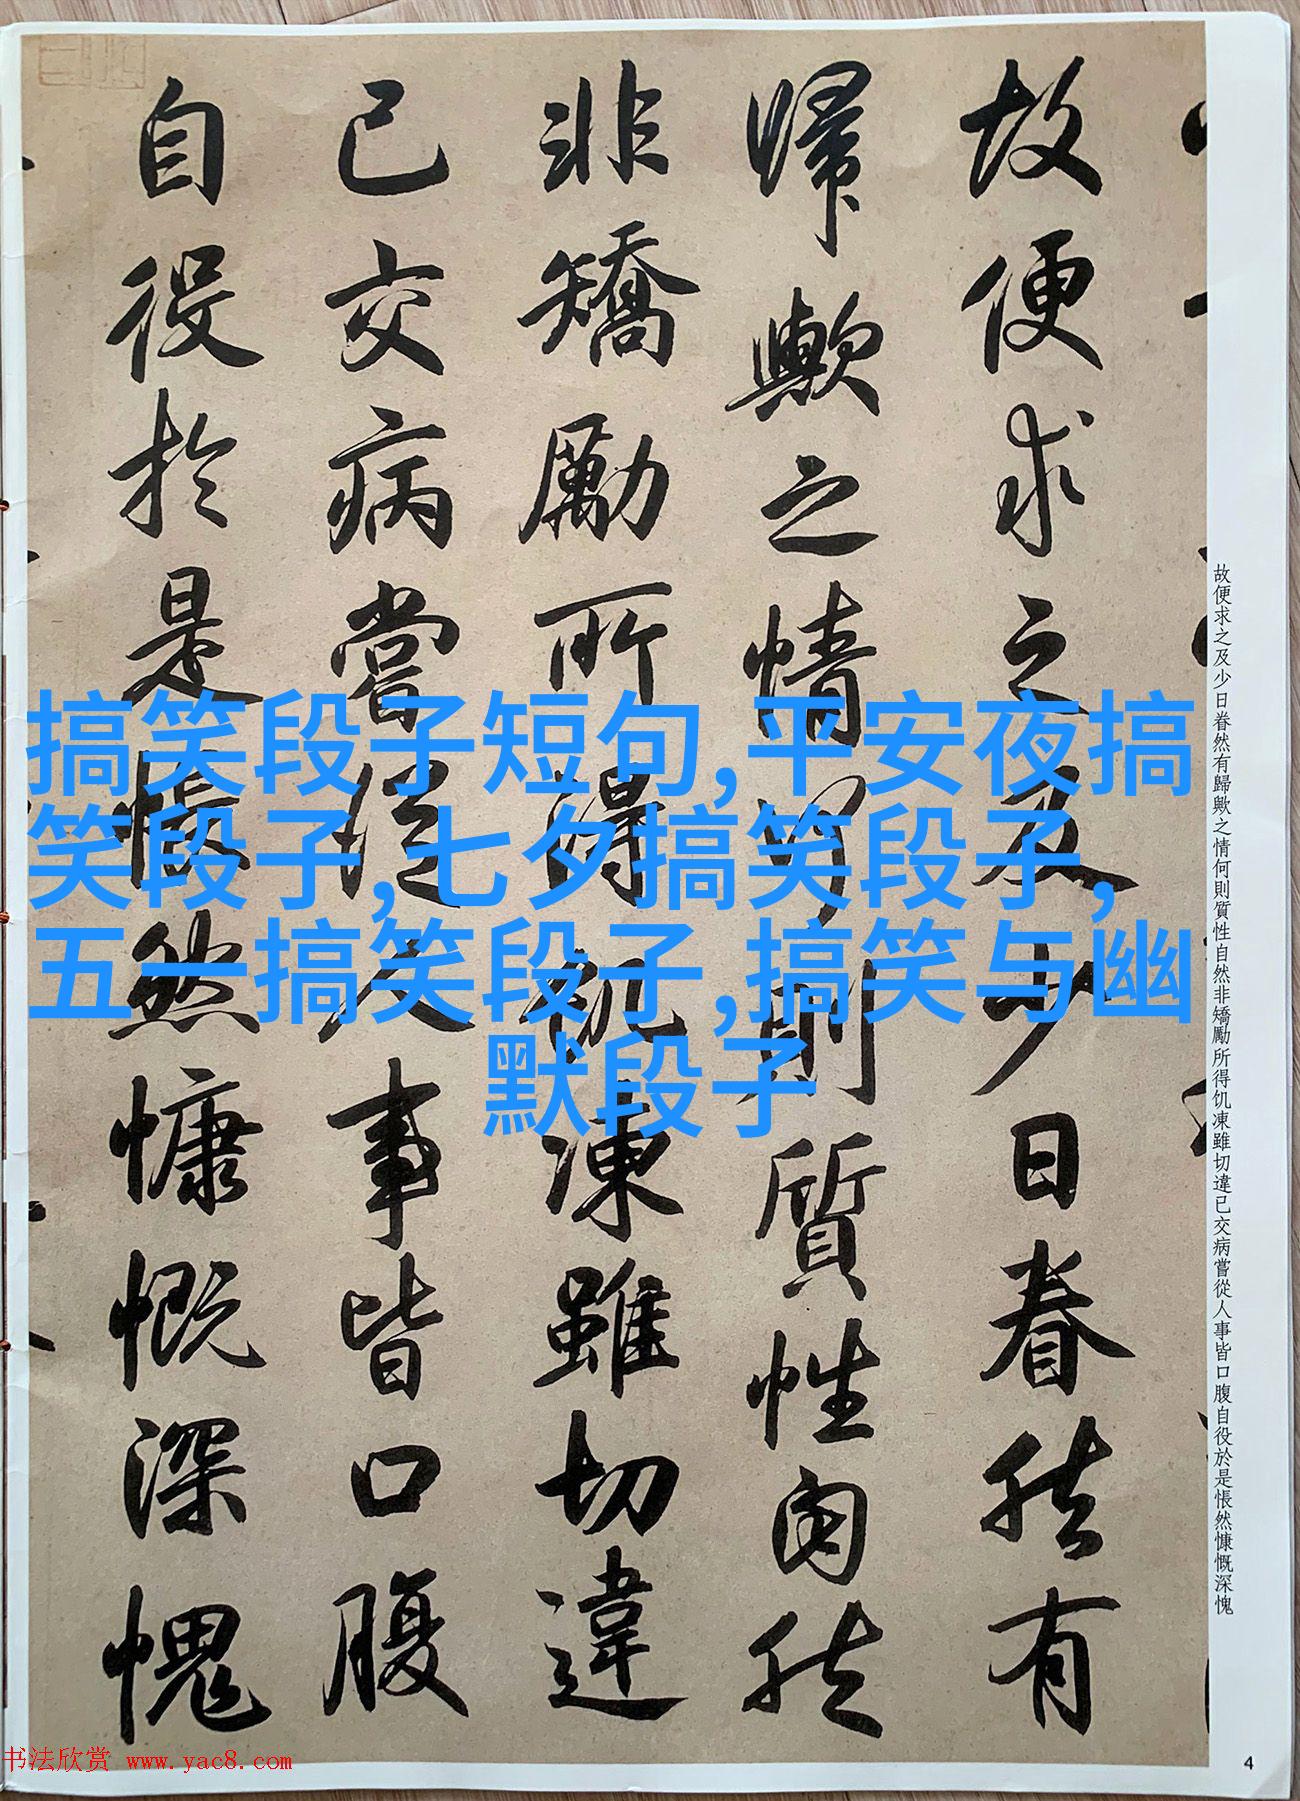 故便求之及少日眷然有歸歟之情何則質性自然非矯勵所得饥凍雖切違已交病嘗從人事皆口腹自役於是悵然慷慨深愧
故便求之及少日眷然有
歸歟之情何則質性自然
非矯勵所得饥凍雖切違
已交病嘗從人事皆口腹
自役於是悵然慷慨深愧
搞笑段子短句,平安夜搞
笑段子,七夕搞笑段子,
五一搞笑段子,搞笑与幽
默段子
书法欣赏 www.yac8.com
4